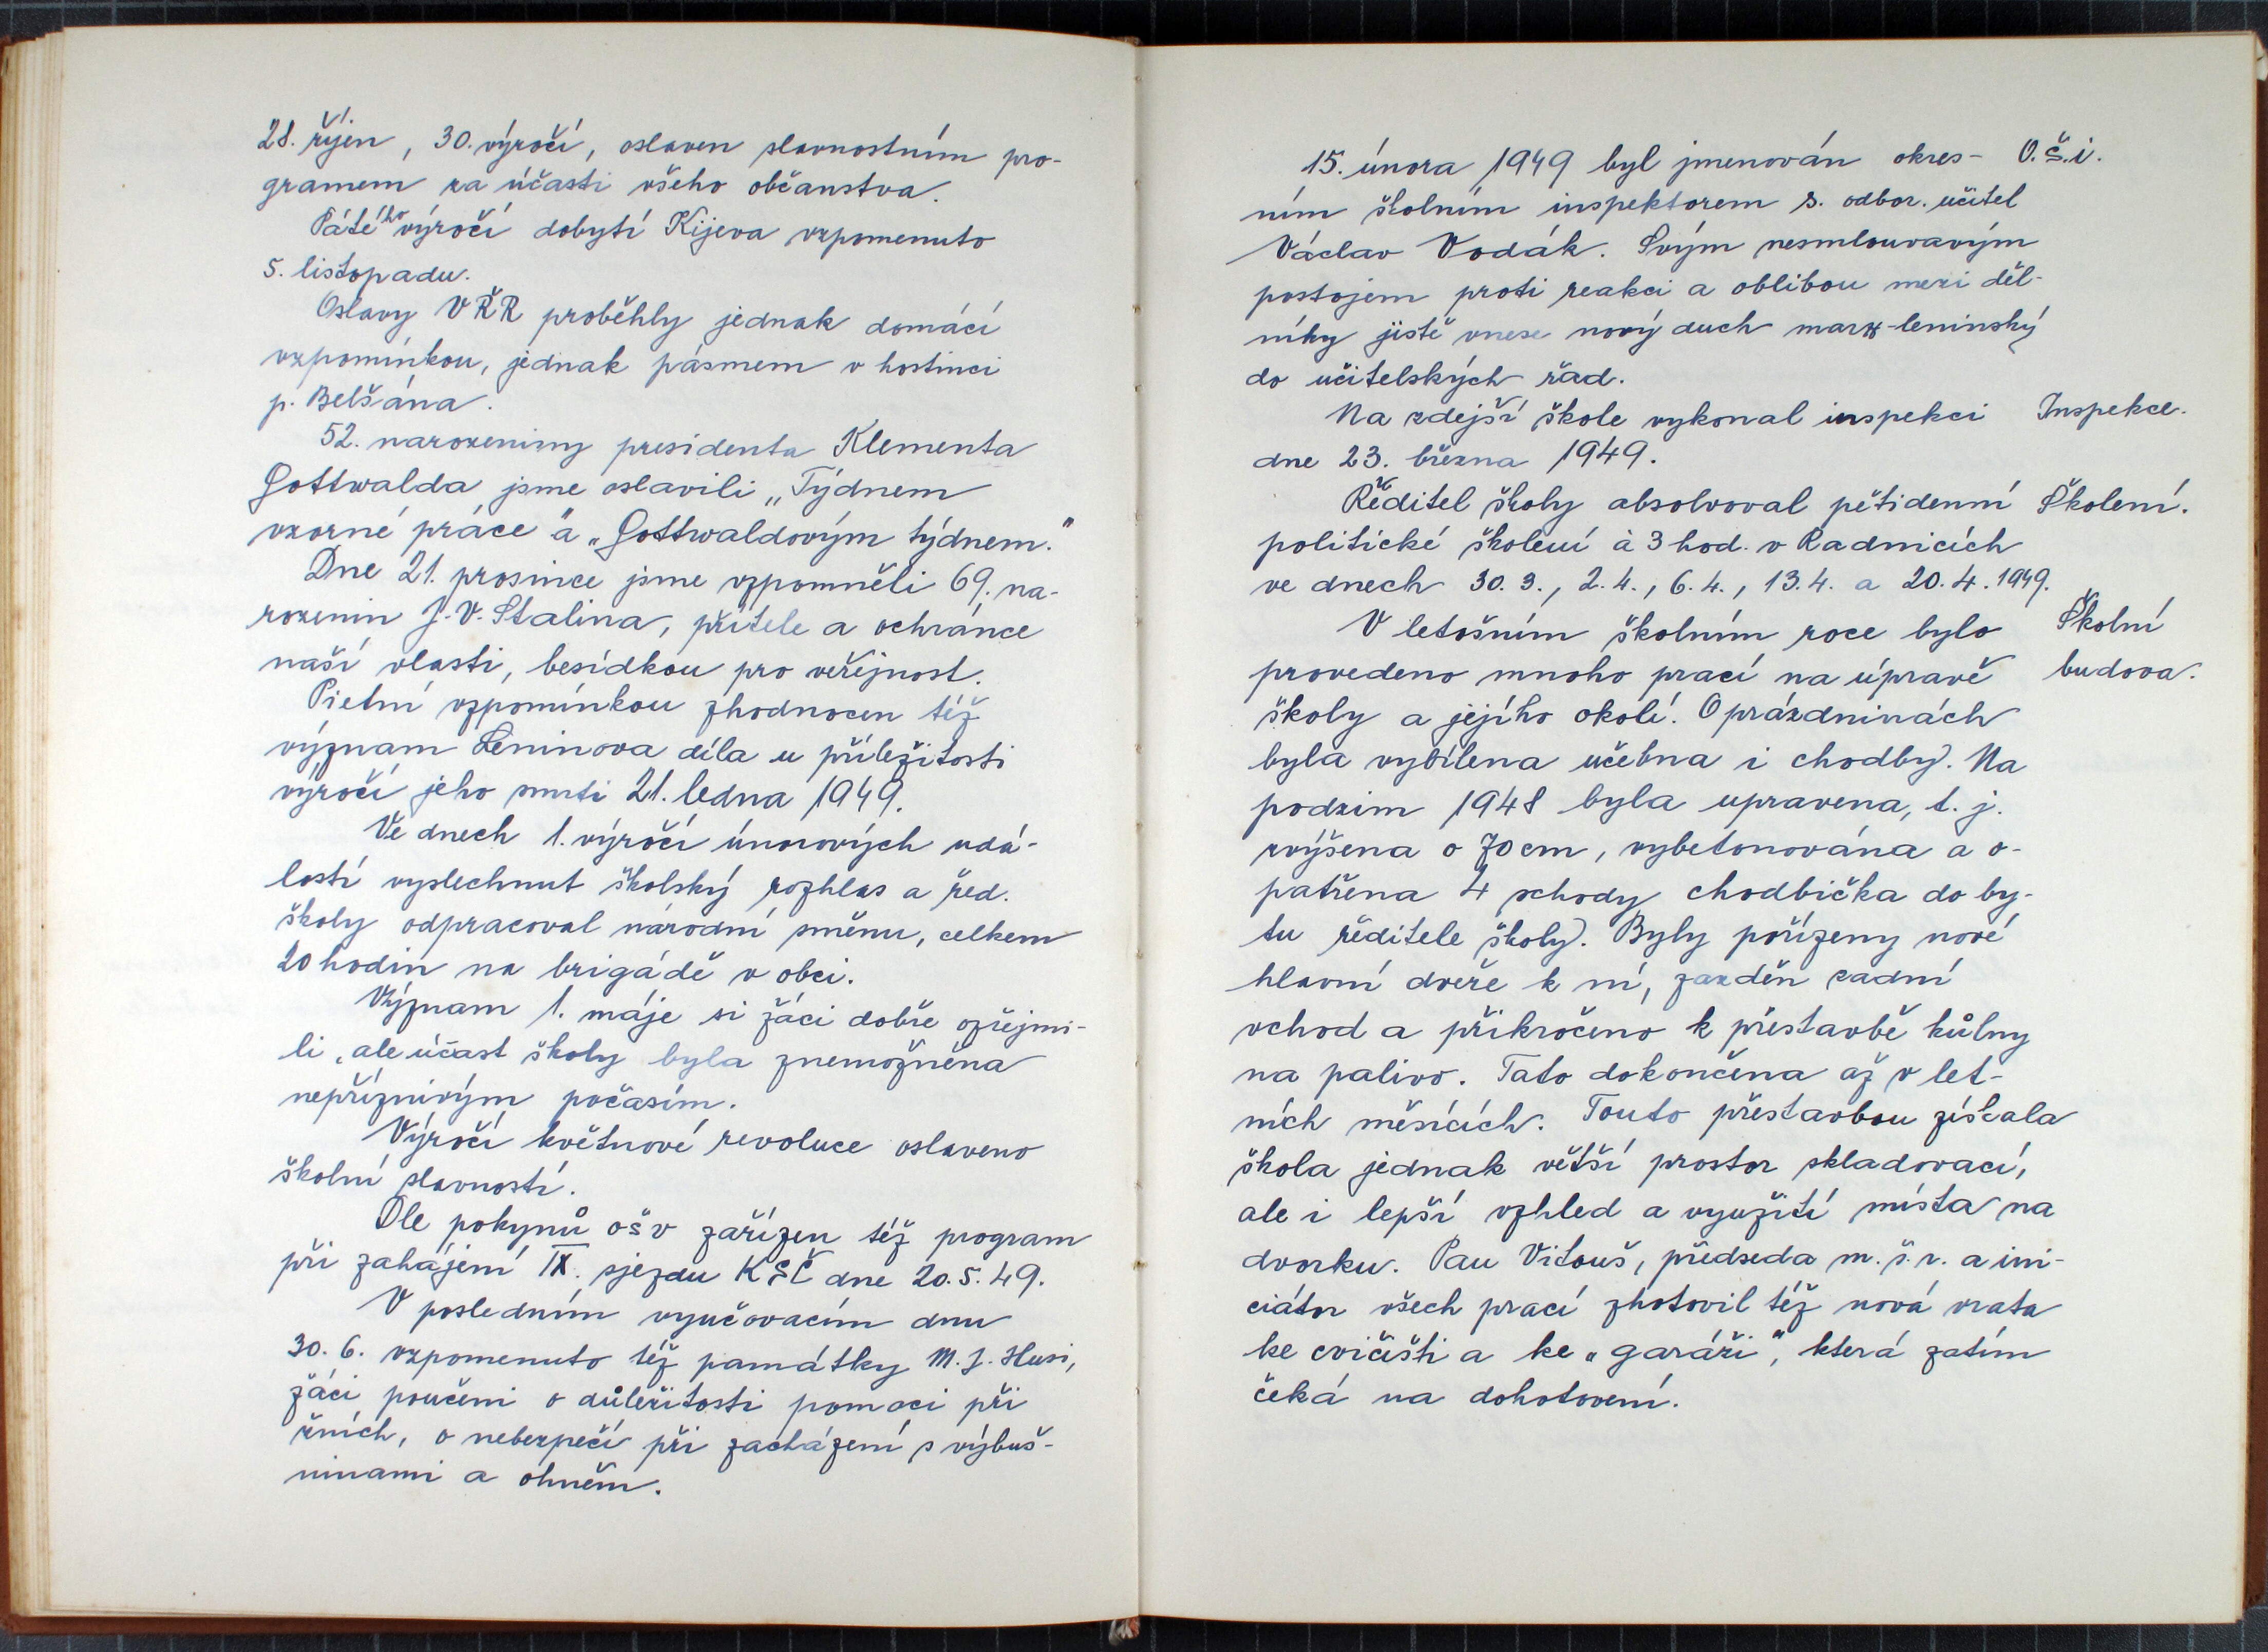 28. říjen, 30. výročí, oslaven slavnostním pro-
gramem za účasti všeho občanstva.
Pátého výročí dobytí Kijeva vzpomenuto
5. listopadu.
Oslavy VŘR proběhly jednak domácí
vzpomínkou, jednak pásmem v hostinci
p. Belšána.
52. narozeniny presidenta Klementa
Gottwalda jsme oslavili „Týdnem
vzorné práce" a „Gottwaldovým týdnem."
Dne 21. prosince jsme vzpomněli 69. na-
rozenin J. V. Stalina, přítele a ochránce
naší vlasti, besídkou pro veřejnost.
Pietní vzpomínkou zhodnocen též
význam Leninova díla u příležitosti
výročí jeho smrti 21. ledna 1949.
Ve dnech 1. výročí únorových udá-
lostí vyslechnut školský rozhlas a řed.
školy odpracoval národní směnu, celkem
20 hodin na brigádě v obci.
Význam 1. máje si žáci dobře ozřejmi-
li, ale účast školy byla znemožněna
nepříznivým počasím.
Výročí květnové revoluce oslaveno
školní slavností.
Dle pokynů ošv zařízen též program
při zahájení IX. sjezdu KSČ dne 20. 5. 49.
V posledním vyučovacím dnu
30. 6. vzpomenuto též památky M. J. Husi,
žáci poučeni o důležitosti pomoci při
žních, o nebezpečí při zacházení s výbuš-
ninami a ohněm.
15. února 1949 byl jmenován okres- O.š.i.
ním školním inspektorem s. odbor. učitel
Václav Vodák. Svým nesmlouvavým
postojem proti reakci a oblibou mezi děl-
níky jistě vnese nový duch marx-leninský
do učitelských řad.
Na zdejší škole vykonal inspekci Inspekce.
dne 23. března 1949.
Ředitel školy absolvoval pětidenní Školení.
politické školení à 3 hod. v Radnicích
ve dnech 30. 3., 2. 4., 6. 4., 13. 4. a 20. 4. 1949.
V letošním školním roce bylo Školní
provedeno mnoho prací na úpravě budova.
školy a jejího okolí. O prázdninách
byla vybílena učebna i chodby. Na
podzim 1948 byla upravena, t. j.
zvýšena o 70 cm, vybetonována a o-
patřena 4 schody chodbička do by-
tu ředitele školy. Byly pořízeny nové
hlavní dveře k ní, zazděn zadní
vchod a přikročeno k přestavbě kůlny
na palivo. Tato dokončena až v let-
ních měsících. Touto přestavbou získala
škola jednak větší prostor skladovací,
ale i lepší vzhled a využití místa na
dvorku. Pan Vitouš, předseda m. š. r. a ini-
ciátor všech prací zhotovil též nová vrata
ke cvičišti a ke „garáži", která zatím
čeká na dohotovení.